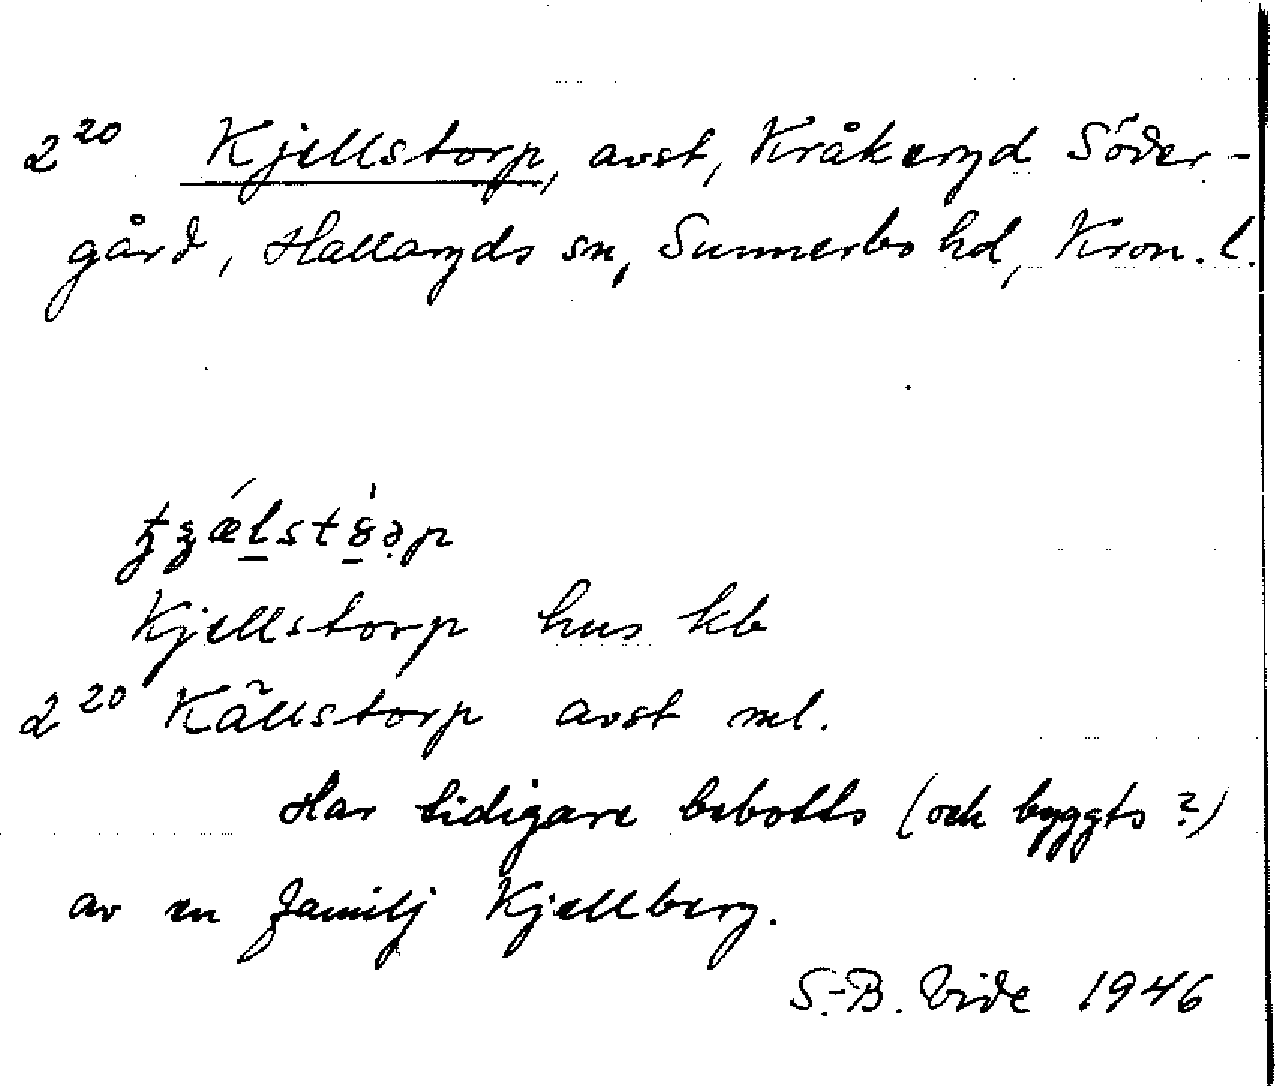 2²⁰ Kjellstorp, avst, Kråkeryd Söder-
gård, Hallaryds sn, Sunnerbo hd, Kron. l.
Kjellstorp hus kb
2²⁰ Källstorp avst ml.
Har tidigare bebotts (och byggts?)
av en familj Kjellberg.
S.-B. Vide 1946